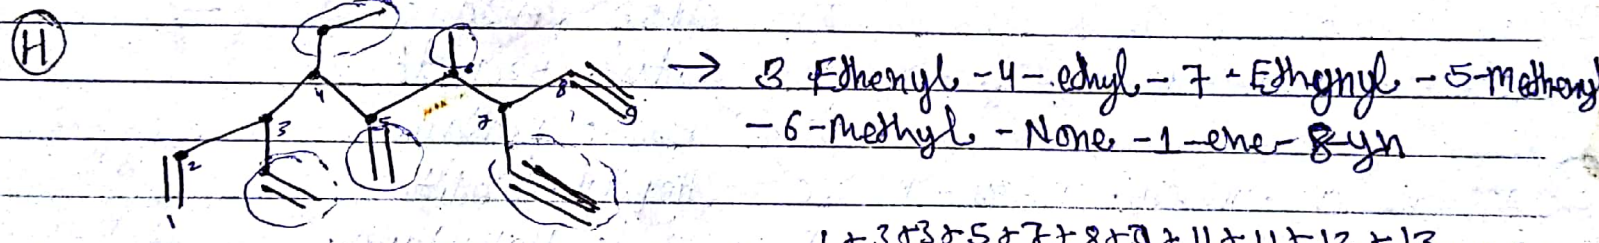 H
4 6 8
3 5 7 9
2
1
→ 3 Ethenyl - 4 - ethyl - 7 - Ethynyl - 5 - Methenyl
- 6 - Methyl - None - 1 - ene - 8 - yn
1+3+3+5+7+8+9+11+11+12+13